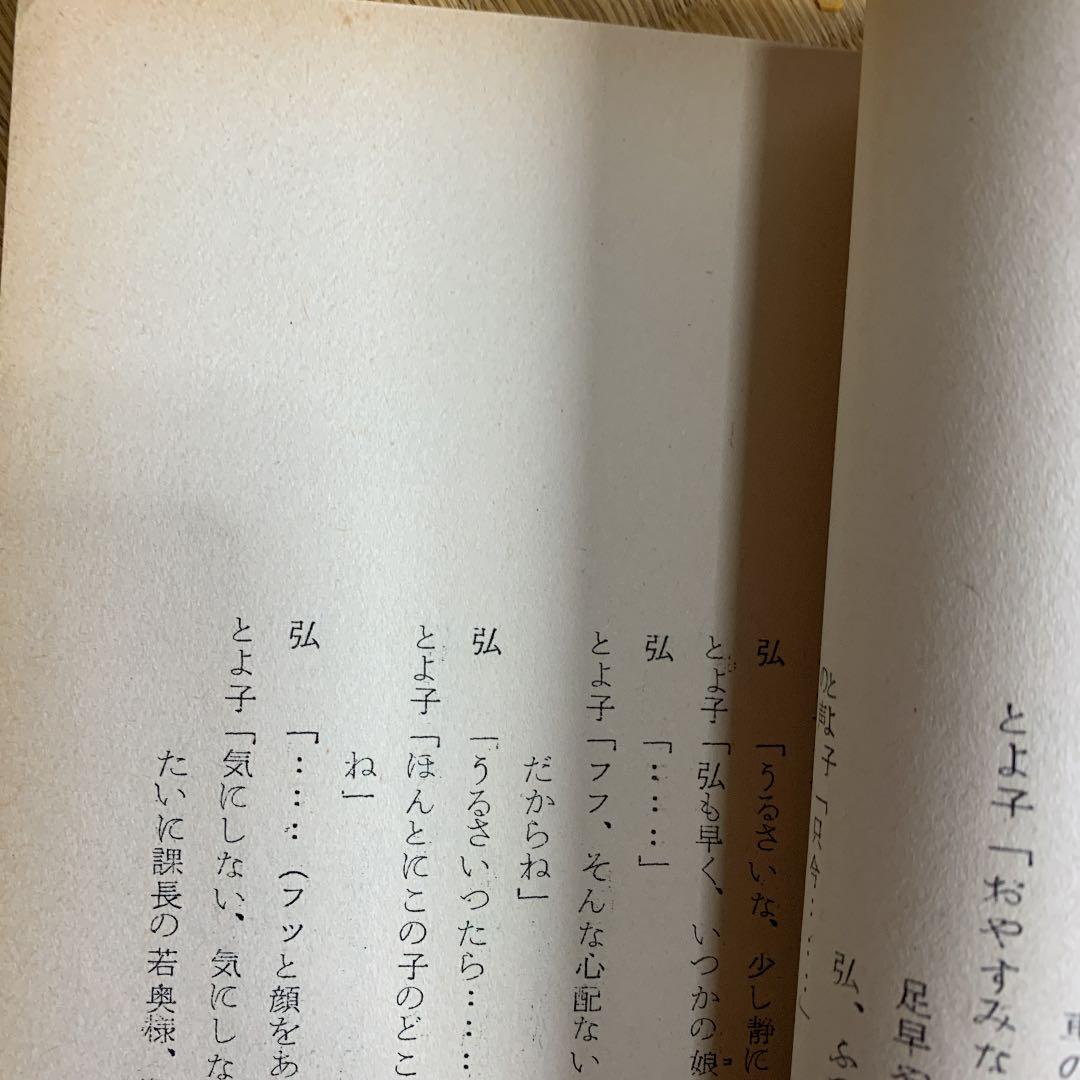 とよ子「おやすみな
足早
弘、ふ
弘「うるさいな、少し静に
とよ子「弘も早く、いつかの娘
弘「………」
とよ子「フフ、そんな心配ない
だからね」
弘「うるさいつたら……
とよ子「ほんとにこの子のどこ
ね」
弘「………(フッと顔をあ
とよ子「気にしない、気にしな
たいに課長の若奥様、